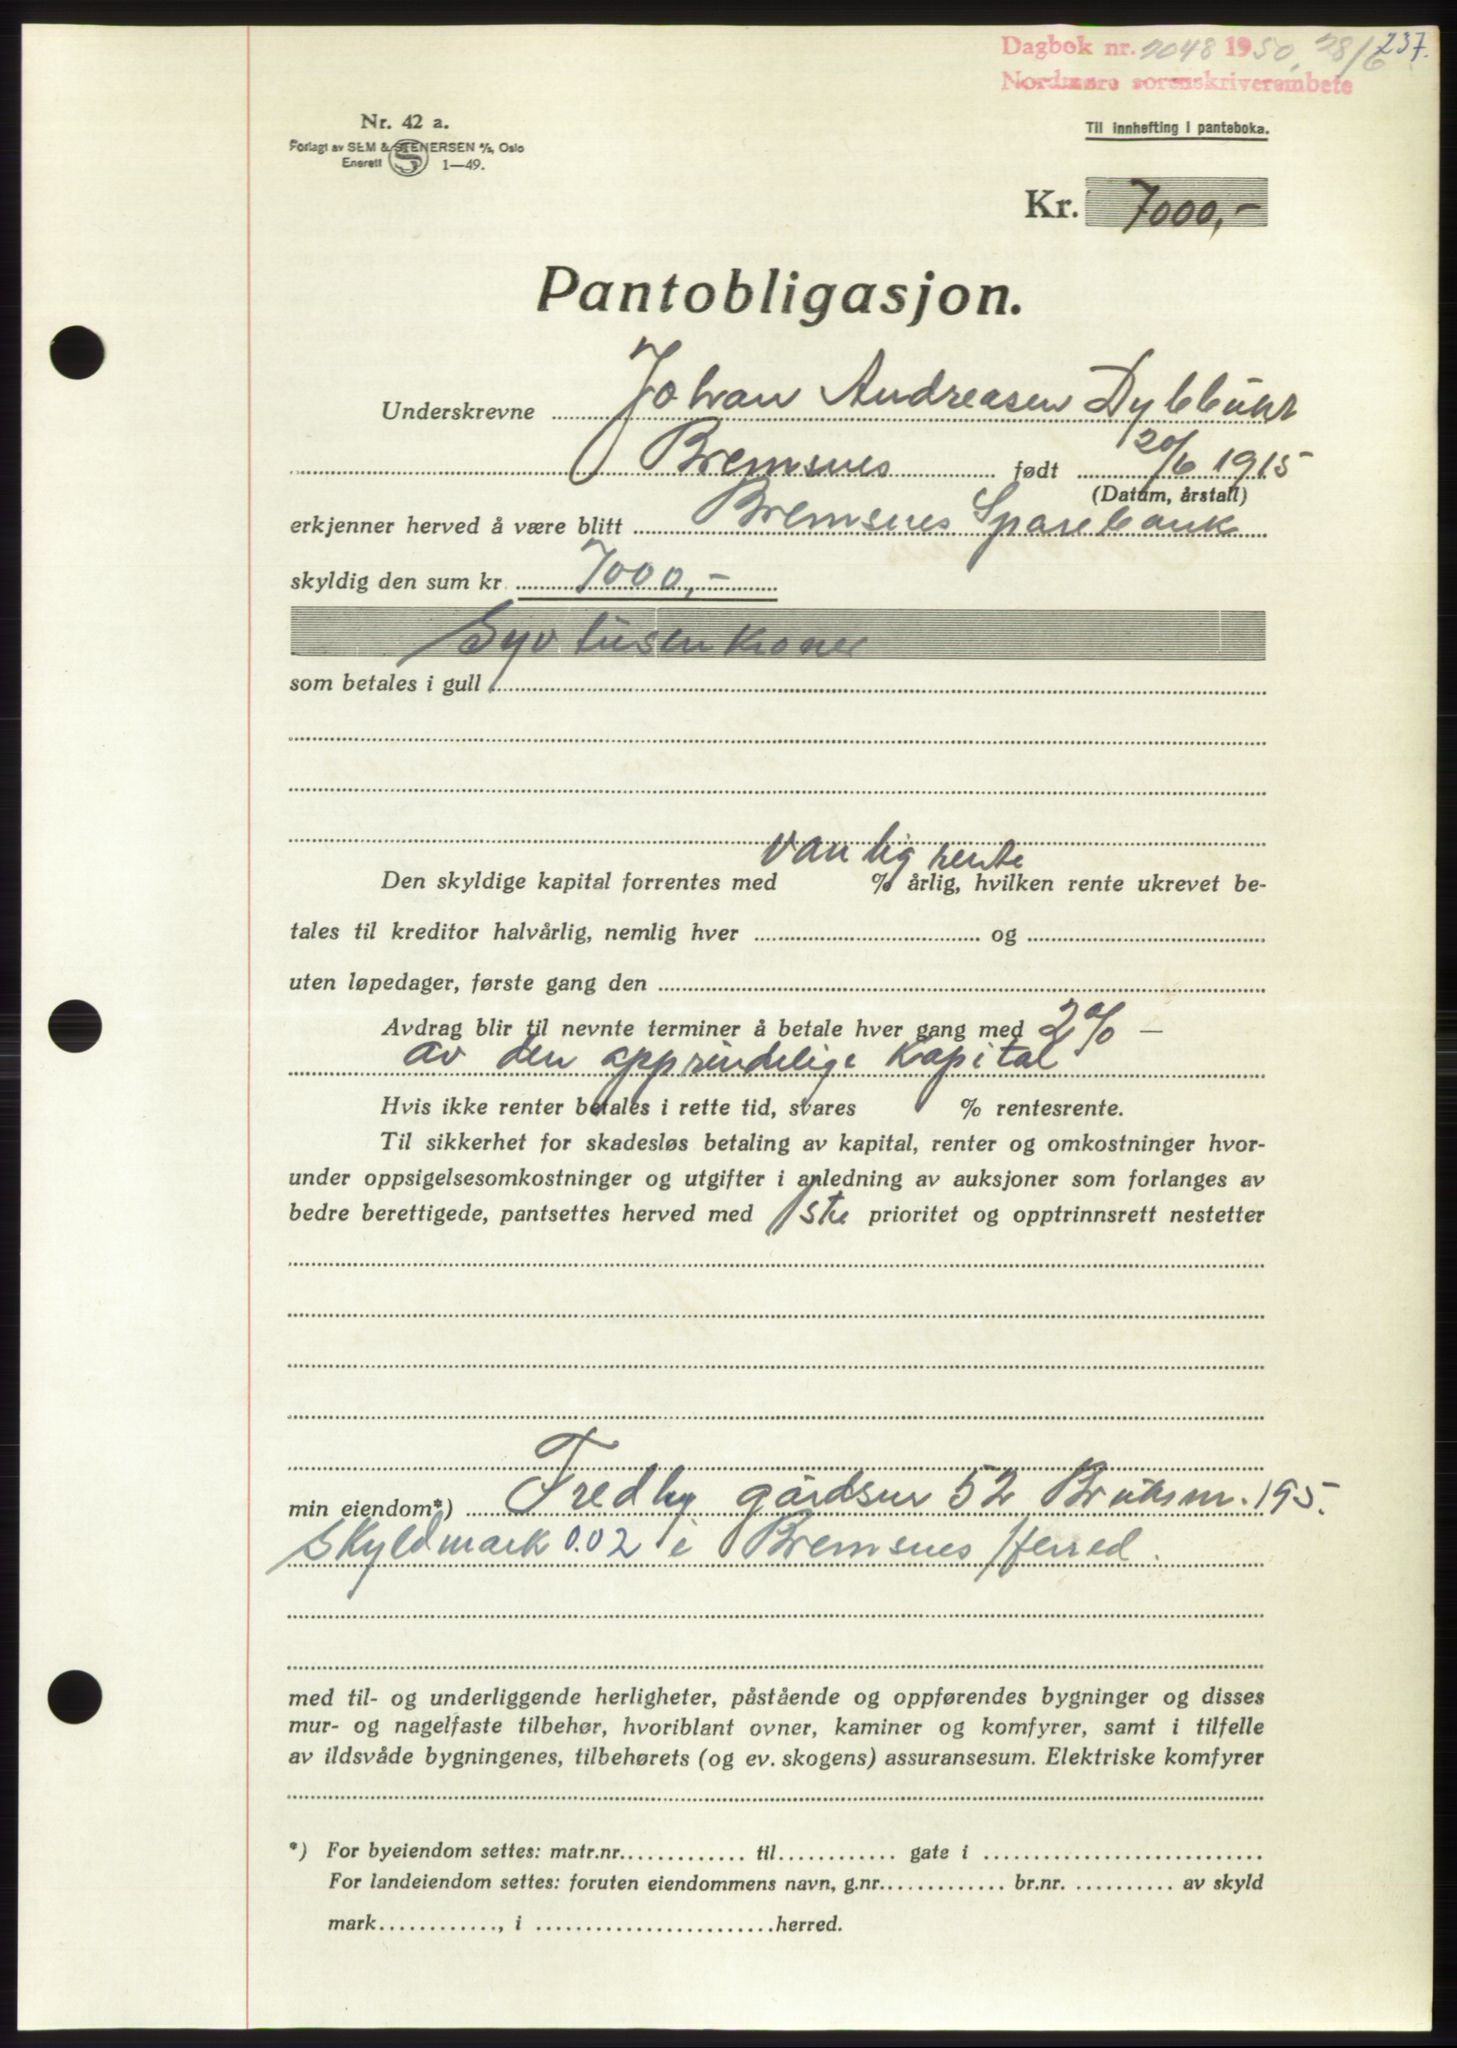 Dagbok nr. 2048 1950, 28/6 237.
Nordmøre sorenskriverembete
Nr. 42 a.
Forlagt av SEM & STENERSEN A/S, Oslo
Enerett 1—49.
Til innhefting i panteboka.
Kr. 7000,-
Pantobligasjon.
Underskrevne Johan Andreasen
Bremsnes født 20/6 1915
(Datum, årstall)
erkjenner herved å være blitt Bremsnes Sparebank
skyldig den sum kr. 7000,-
Syv tusen kroner
som betales i gull
vanlig rente
Den skyldige kapital forrentes med % årlig, hvilken rente ukrevet be-
tales til kreditor halvårlig, nemlig hver og
uten løpedager, første gang den
Avdrag blir til nevnte terminer å betale hver gang med 2% —
av den opprindelige Kapital
Hvis ikke renter betales i rette tid, svares % rentesrente.
Til sikkerhet for skadesløs betaling av kapital, renter og omkostninger hvor-
under oppsigelsesomkostninger og utgifter i anledning av auksjoner som forlanges av
bedre berettigede, pantsettes herved med 1ste prioritet og opptrinnsrett nestetter
min eiendom*) Fredly gårdsnr 52 Bruksnr. 195.
Skyldmark 0.02 i Bremsnes Herred.
med til- og underliggende herligheter, påstående og oppførendes bygninger og disses
mur- og nagelfaste tilbehør, hvoriblant ovner, kaminer og komfyrer, samt i tilfelle
av ildsvåde bygningenes, tilbehørets (og ev. skogens) assuransesum. Elektriske komfyrer
*) For byeiendom settes: matr.nr. til gate i
For landeiendom settes: foruten eiendommens navn, g.nr. br.nr. av skyld
mark, i herred.